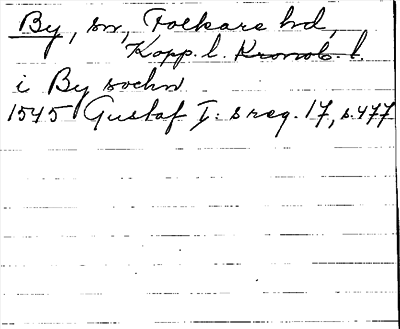 By, sn, Folkare hd,
Kopp. l. Kronob. l.
i By sochn
1545 Gustaf I: s reg. 17, s. 477